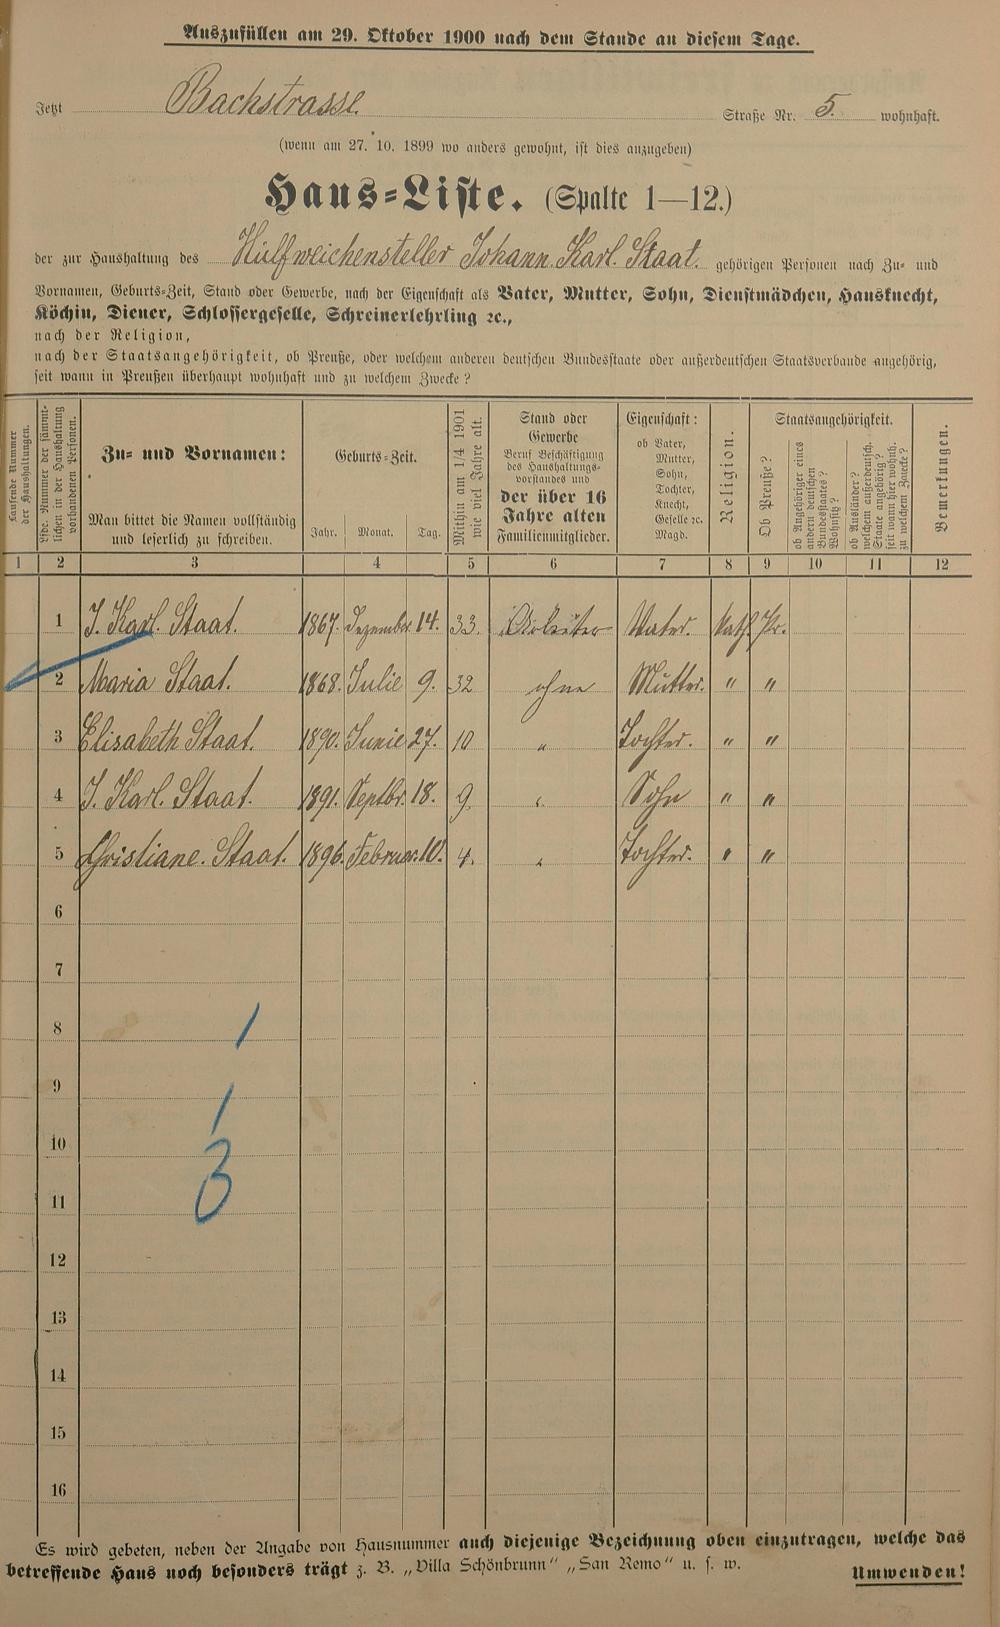 Auszufüllen am 29. Oktober 1900 nach dem Stande an diesem Tage.
Jetzt Bachstrasse. Straße Nr. 5. wohnhaft.
(wenn am 27. 10. 1899 wo anders gewohnt, ist dies anzugeben)
Haus-Liste. (Spalte 1—12.)
der zur Haushaltung des Hülfweichensteller Johann Karl. Staat. gehörigen Personen nach Zu- und
Vornamen, Geburts-Zeit, Stand oder Gewerbe, nach der Eigenschaft als Vater, Mutter, Sohn, Dienstmädchen, Hausknecht,
Köchin, Diener, Schlossergeselle, Schreinerlehrling ꝛc.,
nach der Religion,
nach der Staatsangehörigkeit, ob Preuße, oder welchem anderen deutschen Bundesstaate oder außerdeutschen Staatsverbande angehörig,
seit wann in Preußen überhaupt wohnhaft und zu welchem Zwecke?
Laufende Nummer
der Haushaltungen.
Lfde. Nummer der sämmt-
lichen in der Haushaltung
vorhandenen Personen.
Zu- und Vornamen:
Man bittet die Namen vollständig
und leserlich zu schreiben.
Geburts-Zeit.
Jahr. Monat. Tag.
Mithin am 1/4 1901
wie viel Jahre alt.
Stand oder
Gewerbe
Beruf Beschäftigung
des Haushaltungs-
vorstandes und
der über 16
Jahre alten
Familienmitglieder.
Eigenschaft:
ob Vater,
Mutter,
Sohn,
Tochter,
Knecht,
Geselle ꝛc.
Magd.
Religion.
Staatsangehörigkeit.
Ob Preuße?
ob Angehöriger eines
andern deutschen
Bundesstaates?
Wohnsitz?
ob Ausländer?
welchem außerdeutsch.
Staate angehörig?
seit wann hier wohnh.
zu welchem Zwecke?
Bemerkungen.
1 2 3 4 5 6 7 8 9 10 11 12
1 J. Karl. Staat. 1867. Dezember 14. 33. Arbeiter Vater. Kath. Pr.
2 Maria Staat. 1868. Julie 9. 32 ohne Mutter. " "
3 Elisabeth Staat. 1890. Junie 27. 10 " Tochter. " "
4 J. Karl. Staat. 1891. Septbr. 18. 9. " Sohn " "
5 Christiane. Staat. 1896. Februar. 10. 4. " Tochter. " "
6
7
8 1
9
10 1
11 3
12
13
14
15
16
Es wird gebeten, neben der Angabe von Hausnummer auch diejenige Bezeichnung oben einzutragen, welche das
betreffende Haus noch besonders trägt z. B. „Villa Schönbrunn" „San Remo" u. s. w.
Umwenden!